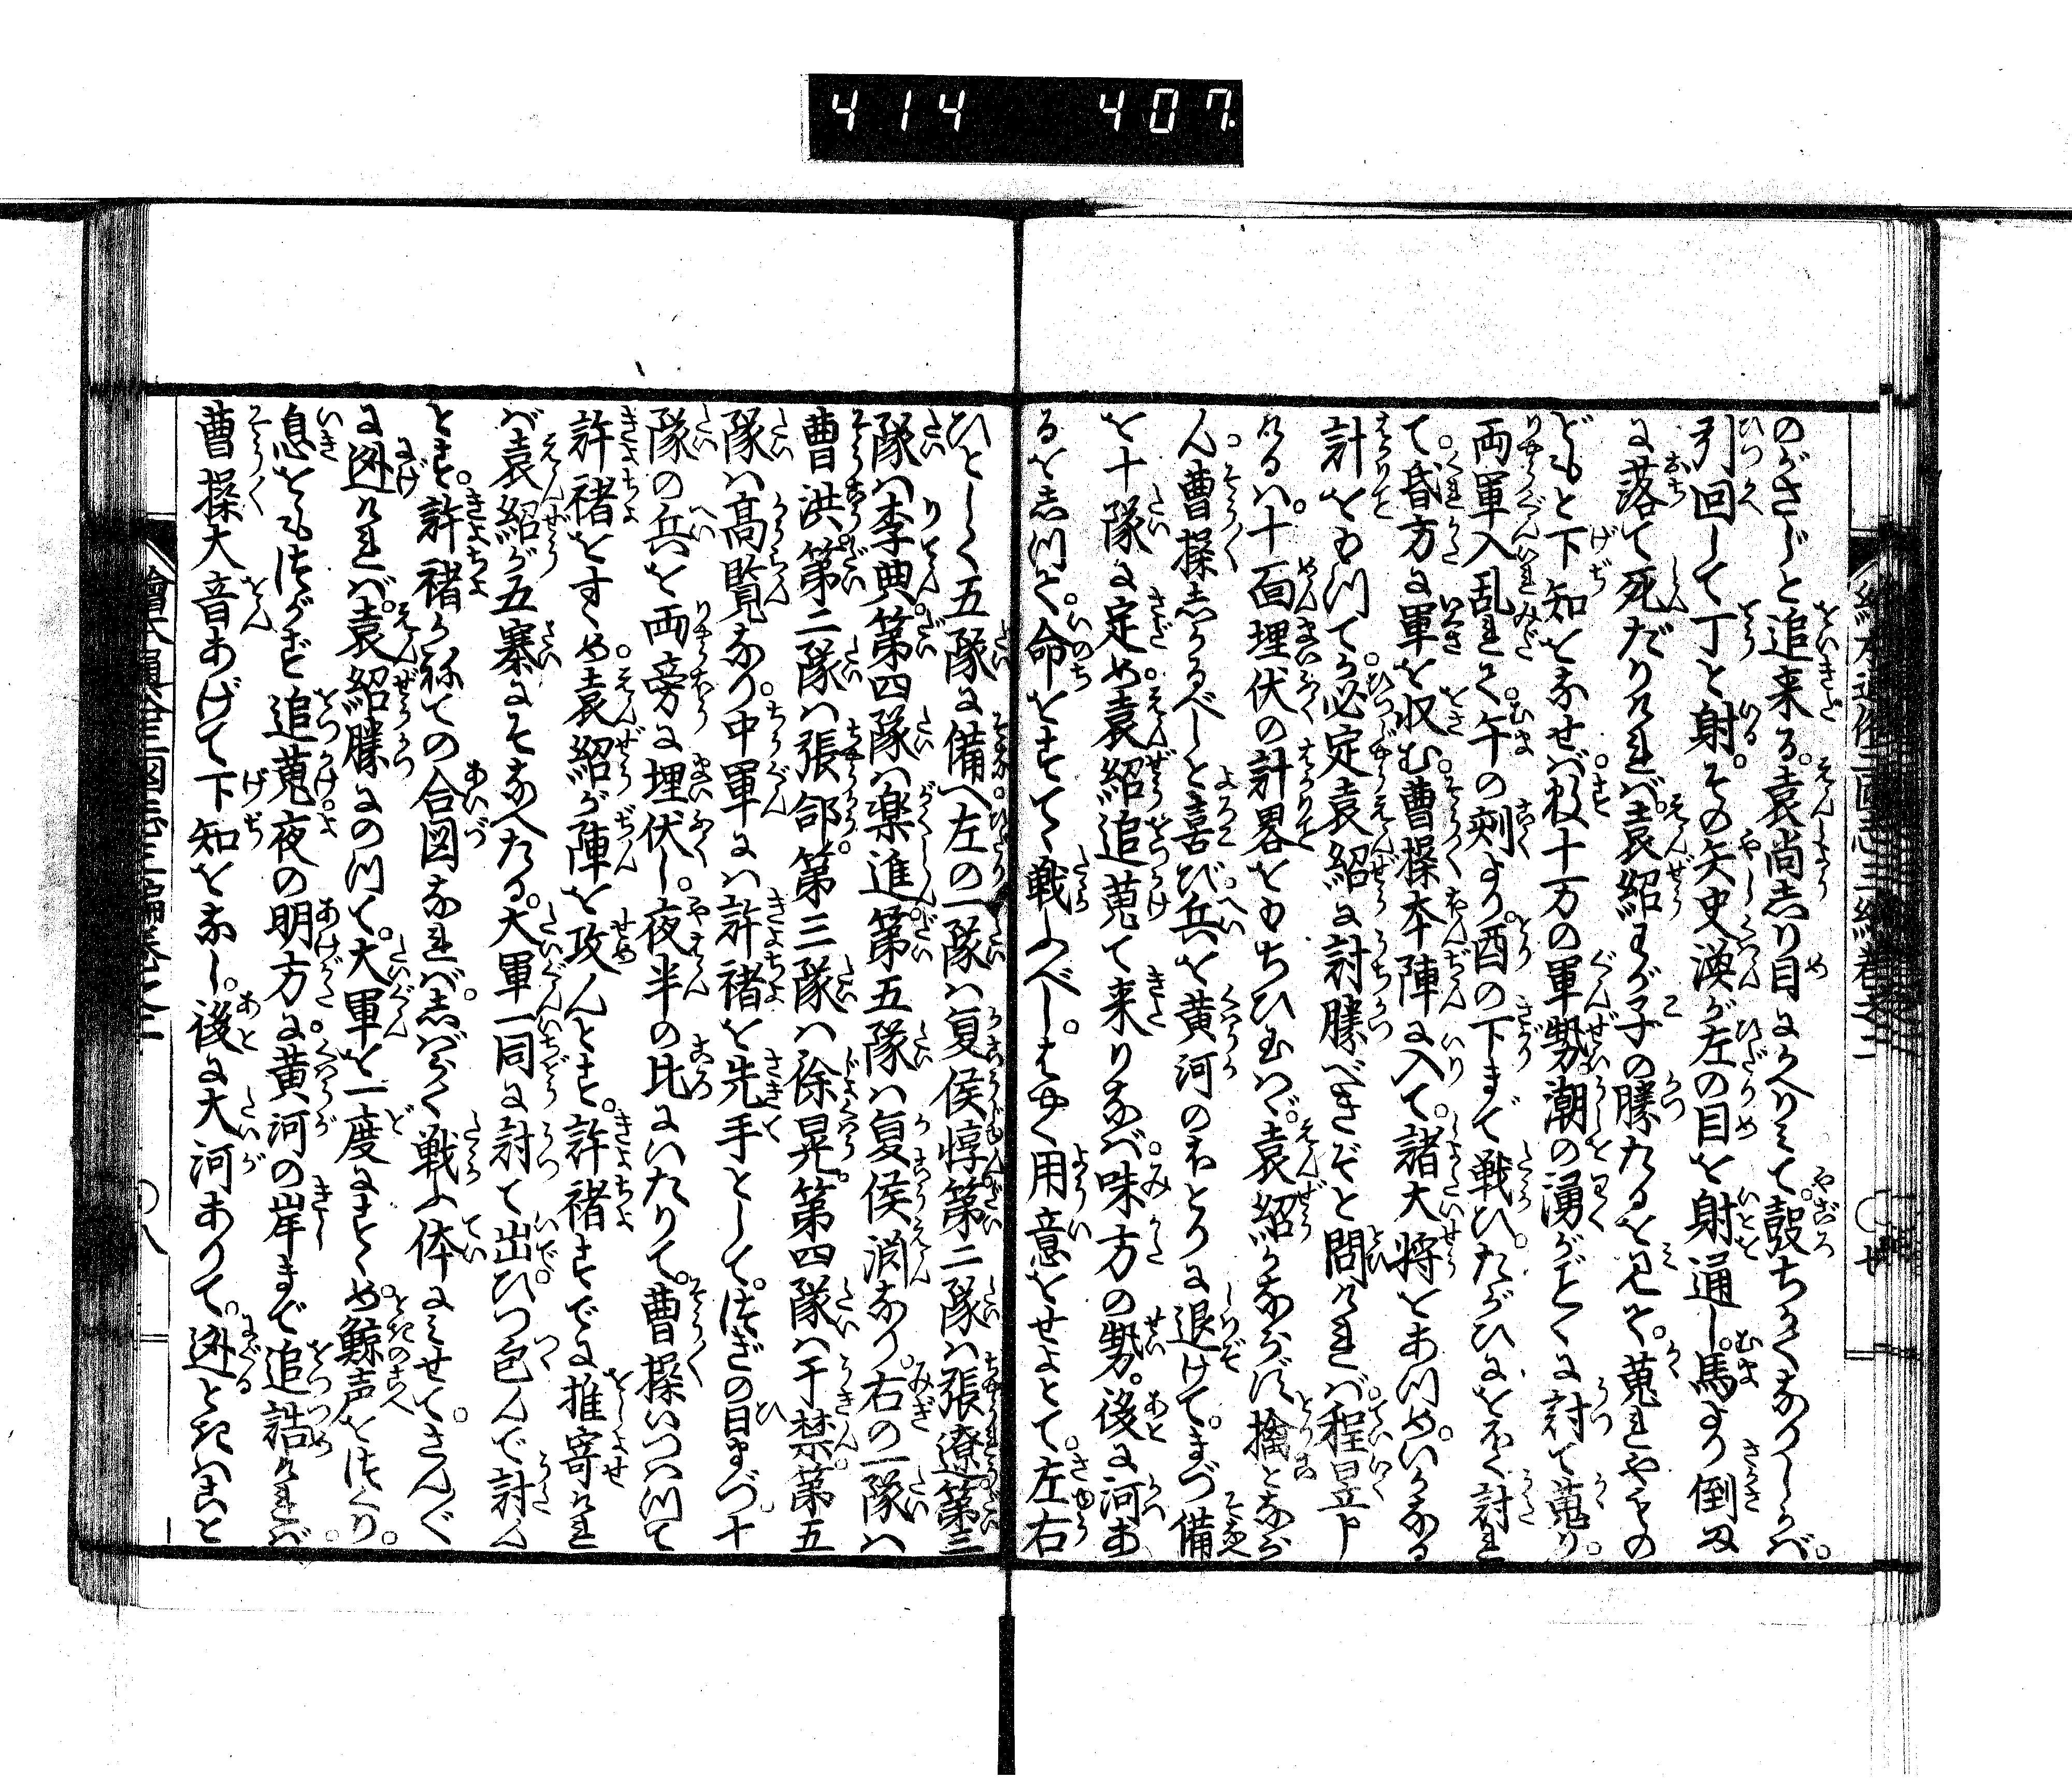 414 407
のがさじと追来る。袁尚しり目にかへりみて。鼓ちかくなりしかば。
引回して丁と射。その矢史渙が左の目を射通し。馬より倒に
に落て死だりければ。袁紹わが子の勝たるを見て。蒐れやもの
どもと下知をなせば。数十万の軍勢。潮の湧がごとくに討て蒐り。
両軍入乱れて。午の刻より。酉の下まで戦ひ。たがひにをほく討れ
て。昏方に軍を収む。曹操本陣に入て。諸大将をあつめ。いかなる
計をもつてか。必定袁紹に討勝べきぞと問ければ。程昱申
けるは。十面埋伏の計畧をもちひ玉はゞ。袁紹かならず擒となら
ん。曹操しかるべしと喜び。兵を黄河のほとりに退けて。まづ備
を十隊に定め。袁紹追蒐て来りなば。味方の勢。後に河あ
るをしつて。命をすてて戦ふべし。はやく用意をせよとて。左右
ひとしく五隊に備へ。左の一隊は夏侯惇。第二隊は張遼。第三
隊は李典。第四隊は楽進。第五隊は夏侯淵なり。右の一隊は
曹洪。第二隊は張郃。第三隊は徐晃。第四隊は于禁。第五
隊は高覧なり。中軍には許褚を先手として。つぎの日まづ。十
隊の兵を両旁に埋伏し。夜半の比にいたりて。曹操いつはつて
許褚をすゝめ。袁紹が陣を攻んとす。許褚すでに推寄けれ
ば。袁紹が五寨にそなへたる。大軍一同に討て出。ひつ包んで討ん
とす。許褚かねての合図なれば。しばらく戦ふ体にみせて。さんぐ
に迯ければ。袁紹勝にのつて。大軍を一度にすゝめ。鯨声をつくり。
息をもつがず追蒐。夜の明方に。黄河の岸まで追詰ければ。
曹操大音あげて下知をなし。後に大河ありて。迯るときはこと